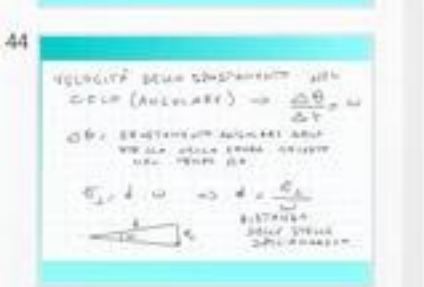 44
VELOCITÀ DELLO SPOSTAMENTO NEL
CIELO (ANGOLARE) → Δθ/Δt = ω
Δθ = SPOSTAMENTO ANGOLARE DELLA
STELLA NELLA SFERA CELESTE
NEL TEMPO Δt
v⊥ = d ω ⇒ d = v⊥/ω
d
v⊥
DISTANZA
DELLA STELLA